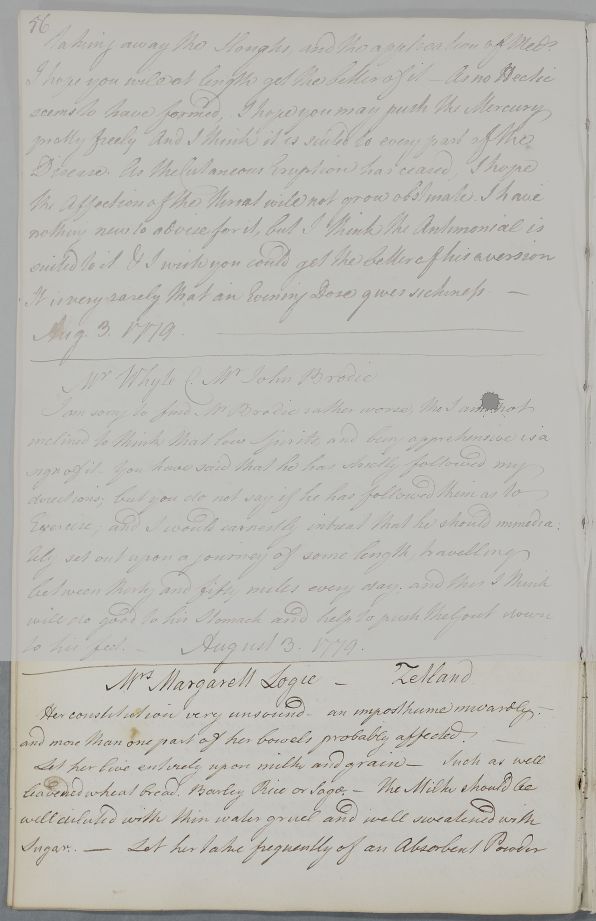 56
taking away the Sloughs, and the application of Meds
I hope you will at length get the better of it – As no Hectic
seems to have formed, I hope you may push the Mercury
pretty freely And I think it is suited to every part of the
Disease. As the Cutaneous Eruption has ceased, I hope
the Affection of the throat will not grow obstinate. I have
nothing new to advise for it, but I think the Antimonial is
suited to it & I wish you could get the better of his aversion
It is very rarely that an Evening Dose gives sickness –
Aug. 3. 1779.
Mr Whyte C. Mr John Brodie
I am sorry to find Mr Brodie rather worse, tho I am not
inclined to think that low Spirits, and being apprehensive is a
sign of it. You have said that he has strictly followed my
directions; but you do not say if he has followed them as to
Exercise; and I would earnestly intreat that he should immedia:
tely set out upon a journey of some length, travelling
between thirty and fifty miles every day: and this I think
will do good to his Stomach and help to push the Gout down
to his feet. – August 3. 1779.
Mrs Margarett Logie – Zetland
Her constitution very unsound – an imposthume inwardly, –
and more than one part of her bowels probably affected; –
Let her live entirely upon milk and grain – Such as well
leavened wheat bread. Barley Rice or Sago; – the Milk should be
well diluted with thin water gruel and well sweatened with
Sugar. – Let her take frequently of an Absorbent Powder